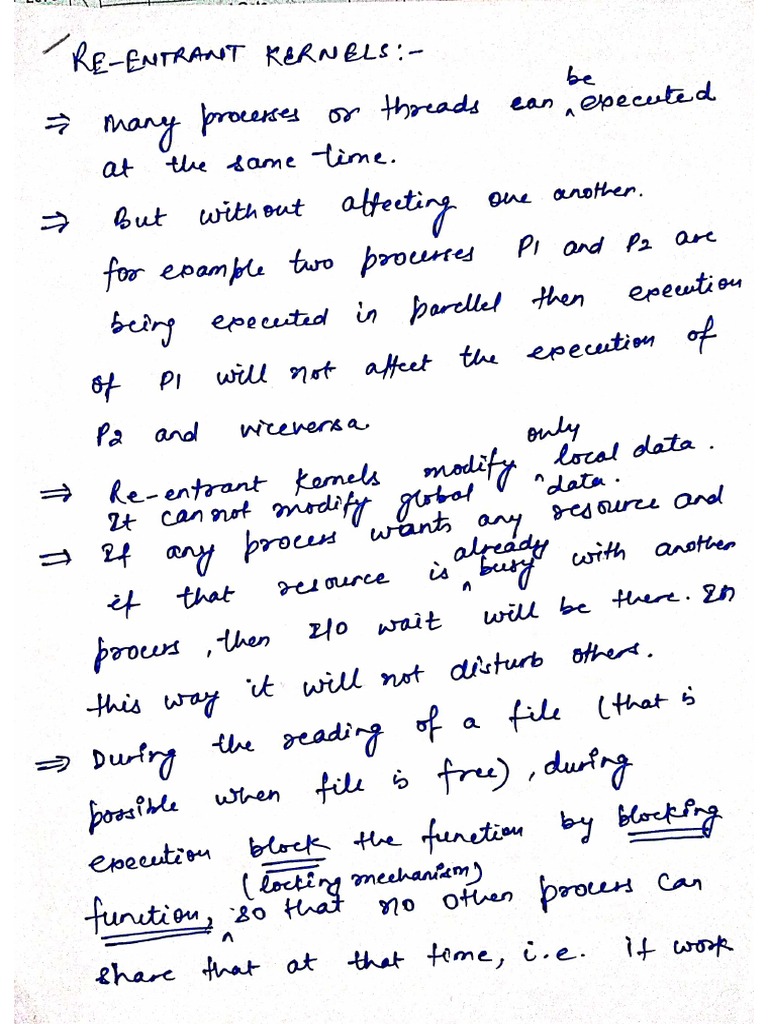 RE-ENTRANT KERNELS:-
⇒ Many processes or threads can be executed
at the same time.
⇒ But without affecting one another.
for example two processes P1 and P2 are
being executed in parellel then execution
of P1 will not affect the execution of
P2 and viceversa.
⇒ Re-entrant Kernels modify only local data.
It can not modify global data.
⇒ If any process wants any resource and
if that resource is already busy with another
process, then I/O wait will be there. In
this way it will not disturb others.
⇒ During the reading of a file (that is
possible when file is free), during
execution block the function by blocking
function, (locking mechanism) so that no other process can
share that at that time, i.e. it work